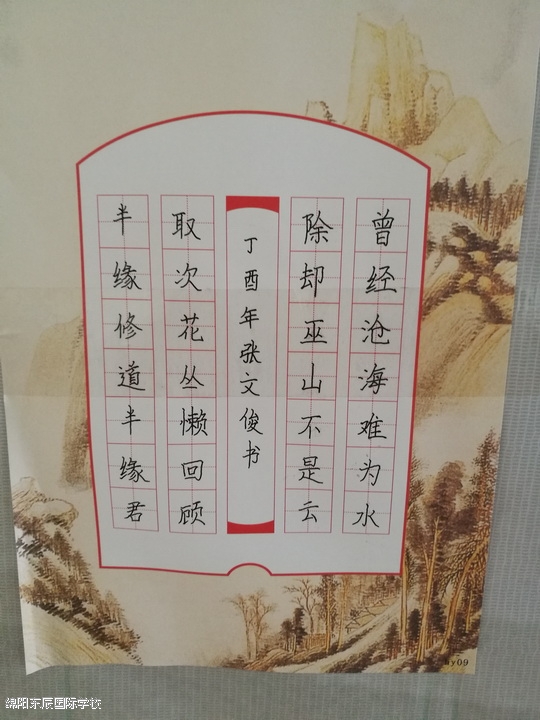 曾经沧海难为水
除却巫山不是云
丁酉年张文俊书
取次花丛懒回顾
半缘修道半缘君
绵阳东辰国际学校